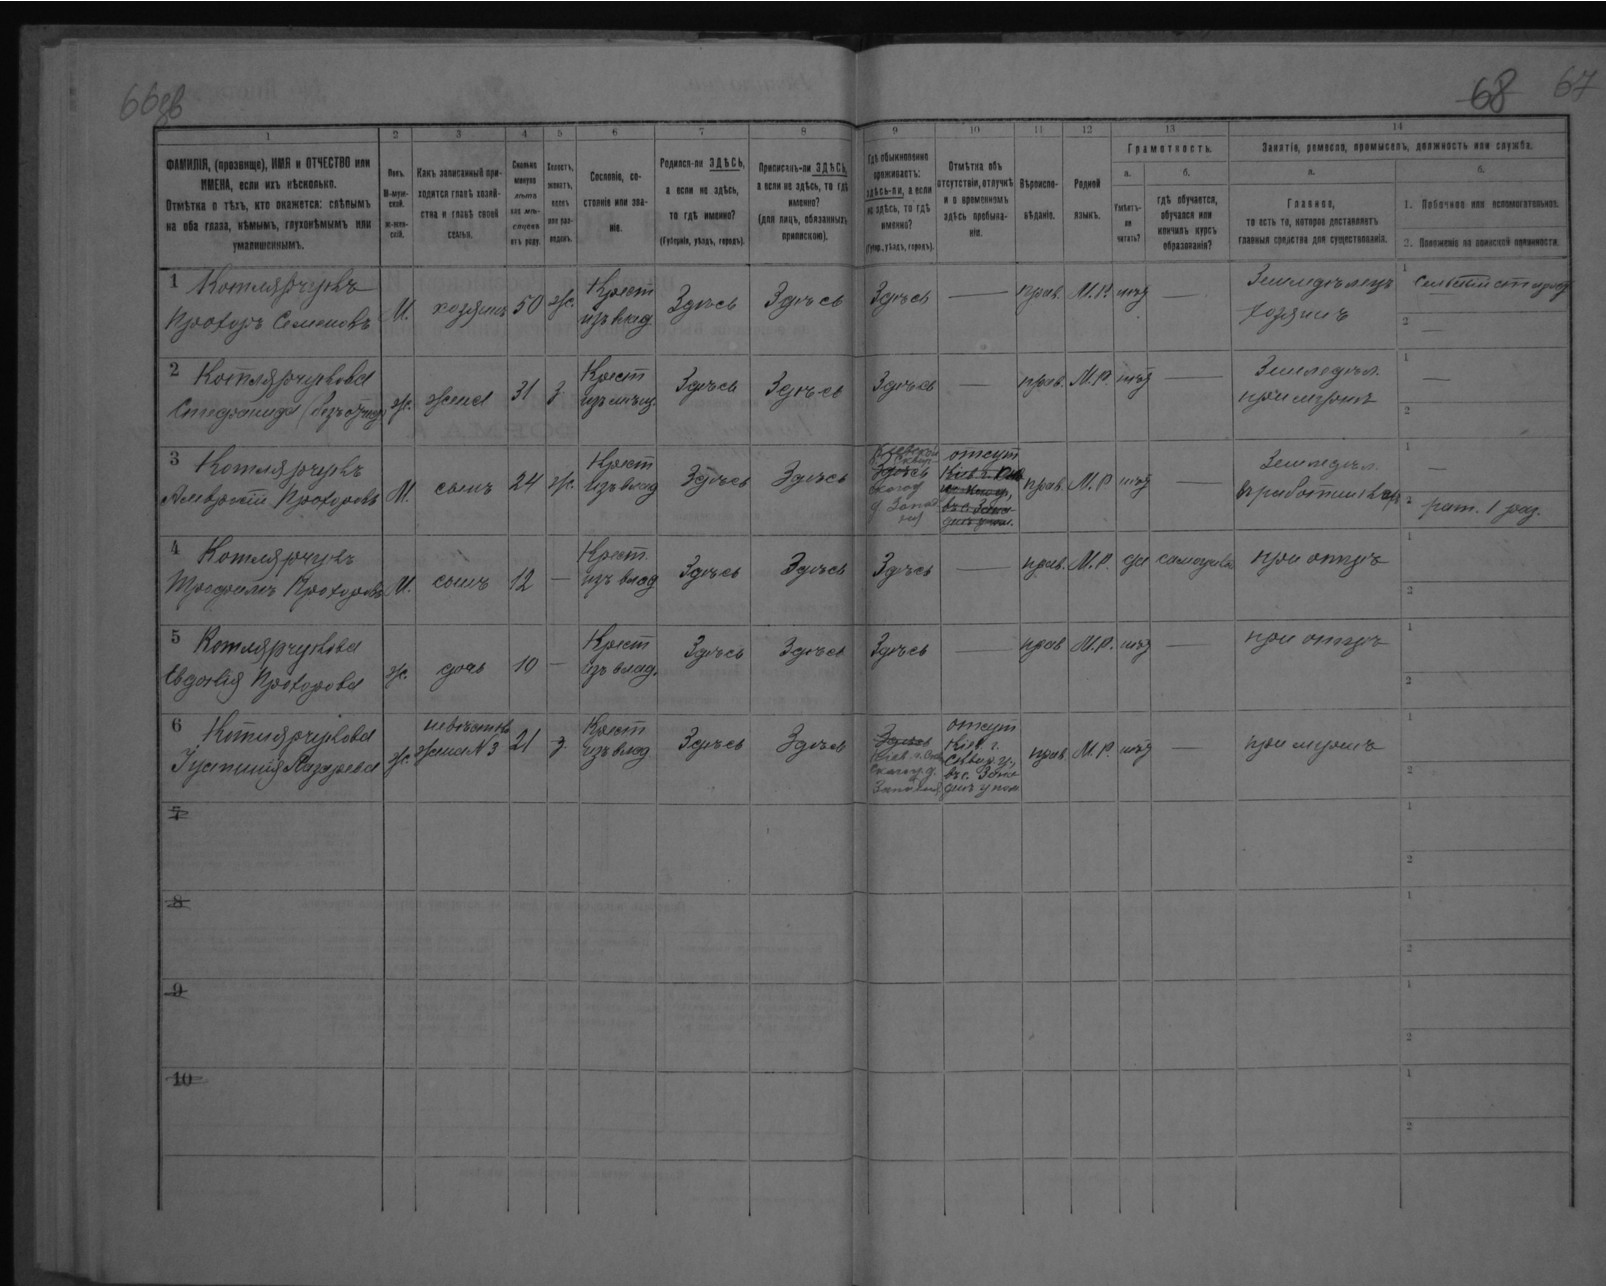 66об
68 67
1 2 3 4 5 6 7 8 9 10 11 12 13 14
ФАМИЛІЯ, (прозвище), ИМЯ и ОТЧЕСТВО или
ИМЕНА, если ихъ нѣсколько.
Отмѣтка о тѣхъ, кто окажется: слѣпымъ
на оба глаза, нѣмымъ, глухонѣмымъ или
умалишеннымъ.
Полъ.
М-муж-
ской.
Ж-жен-
скій.
Какъ записанный при-
ходится главѣ хозяй-
ства и главѣ своей
семьи.
Сколько
минуло
лѣтъ
или мѣ-
сяцевъ
отъ роду.
Холостъ,
женатъ,
вдовъ
или раз-
веденъ.
Сословіе, со-
стояніе или зва-
ніе.
Родился-ли ЗДѢСЬ,
а если не здѣсь,
то гдѣ именно?
(Губернія, уѣздъ, городъ).
Приписанъ-ли ЗДѢСЬ,
а если не здѣсь, то гдѣ
именно?
(для лицъ, обязанныхъ
припискою).
Гдѣ обыкновенно
проживаетъ:
здѣсь-ли, а если
не здѣсь, то гдѣ
именно?
(Губер., уѣздъ, городъ).
Отмѣтка объ
отсутствіи, отлучкѣ
и о временномъ
здѣсь пребыва-
ніи.
Вѣроиспо-
вѣданіе.
Родной
языкъ.
Грамотность.
а.
Умѣетъ-
ли
читать?
б.
гдѣ обучается,
обучался или
кончилъ курсъ
образованія?
Занятіе, ремесло, промыселъ, должность или служба.
а.
Главное,
то есть то, которое доставляетъ
главныя средства для существованія.
б.
1. Побочное или вспомогательное.
2. Положеніе по воинской повинности.
1 Котлярчукъ
Прохоръ Семеновъ
М. хозяинъ 50 ж.
Крест
изъ влад
Здѣсь Здѣсь Здѣсь — прав. М.Р. нѣт —
Земледѣлецъ
хозяинъ
1
2 —
2 Котлярчукова
Степанида
ж. жена 31 з.
Крест
Здѣсь Здѣсь Здѣсь — прав. М.Р. нѣт —
Земледѣл.
при мужѣ
1 —
2
3 Котлярчукъ
Прохоровъ
М. сынъ 24 ж.
Крест
изъ влад
Здѣсь Здѣсь
Здѣсь
отсут
прав. М.Р. нѣт —
Земледѣл.
1 —
2 рат. 1 раз.
4 Котлярчукъ
Трофимъ Прохоровъ
М. сынъ 12 —
Крест
изъ влад
Здѣсь Здѣсь Здѣсь — прав. М.Р. да
при отцѣ
1
2
5 Котлярчукова
Евдокія Прохорова
ж. дочь 10 —
Крест
изъ влад.
Здѣсь Здѣсь Здѣсь — прав М.Р. нѣт —
при отцѣ
1
2
6 Котлярчукова
Устинія Лазарева
ж.
невѣстка
жена N 3
21 з.
Крест
изъ влад
Здѣсь Здѣсь
Здѣсь
отсут
Кіев. г.
Сквир. у.,
прав М.Р. нѣт —
при мужѣ
1
2
7
1
2
8
1
2
9
1
2
10
1
2